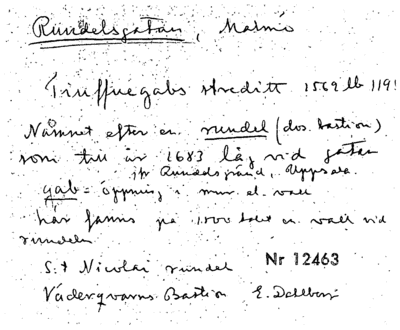 Rundelsgatan, Malmö
Truffuegabs streditt 1569 Mb 119
Namnet efter en rundel (dvs. bastion)
som till år 1683 låg vid gatan
jfr Rundelsgränd, Uppsala.
gab = öppning i mur el. vall
här fanns på 1500 talet en vall vid
rundeln
S:t Nicolai rundel Nr 12463
Väderqvarns Bastion E. Dahlberg